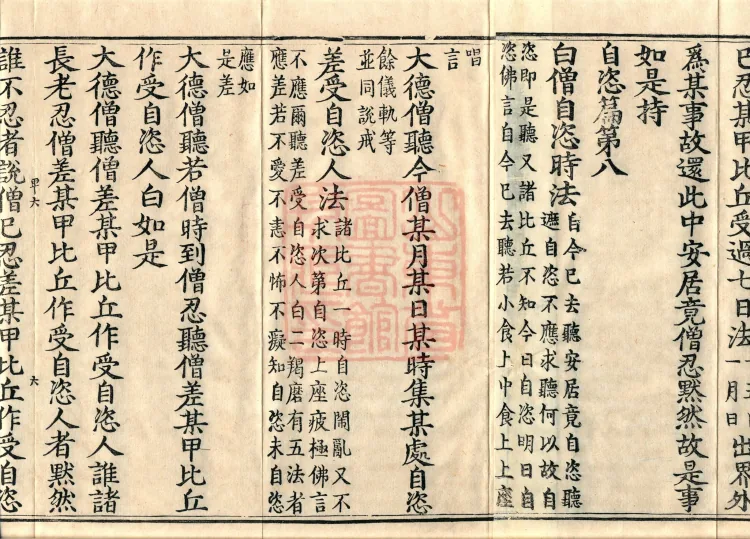 已忍某甲比丘受過七日法一月日出界外
爲某事故還此中安居竟僧忍黙然故是事
如是持
自恣篇第八
白僧自恣時法自今已去聽安居竟自恣聽
遮自恣不應求聽何以故自
恣即是聽又諸比丘不知今日自恣明日自
恣佛言自今已去聽若小食上中食上上座
唱
言
大德僧聽今僧某月某日某時集某處自恣
餘儀軌等
並同説戒
差受自恣人法諸比丘一時自恣閙亂又不
求次第自恣上座疲極佛言
不應爾聽差受自恣人白二羯磨有五法者
應差若不愛不恚不怖不癡知自恣未自恣
應如
是差
大德僧聽若僧時到僧忍聽僧差某甲比丘
作受自恣人白如是
大德僧聽僧差某甲比丘作受自恣人誰諸
長老忍僧差某甲比丘作受自恣人者黙然
誰不忍者説僧已忍差某甲比丘作受自恣
六